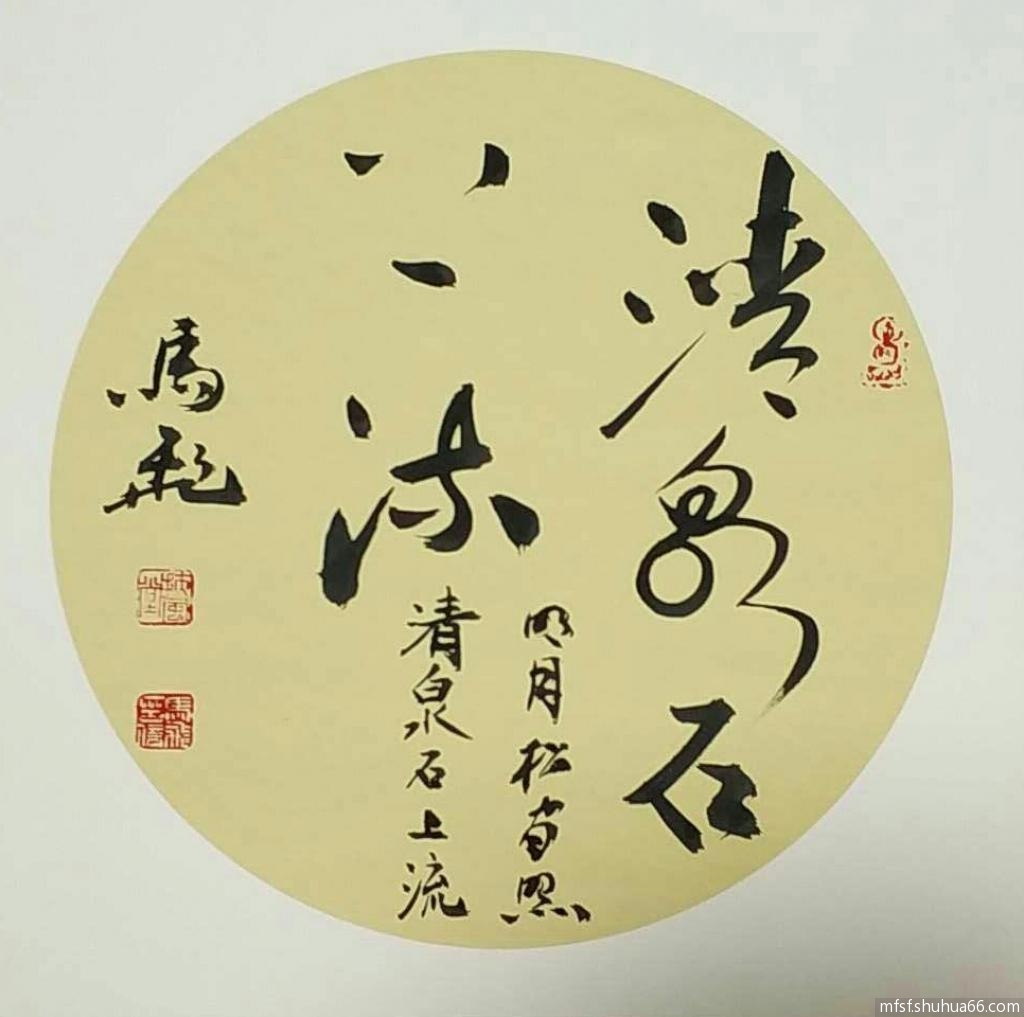 清泉石
上流
明月松间照
清泉石上流
馬飛
mfsf.shuhua66.com